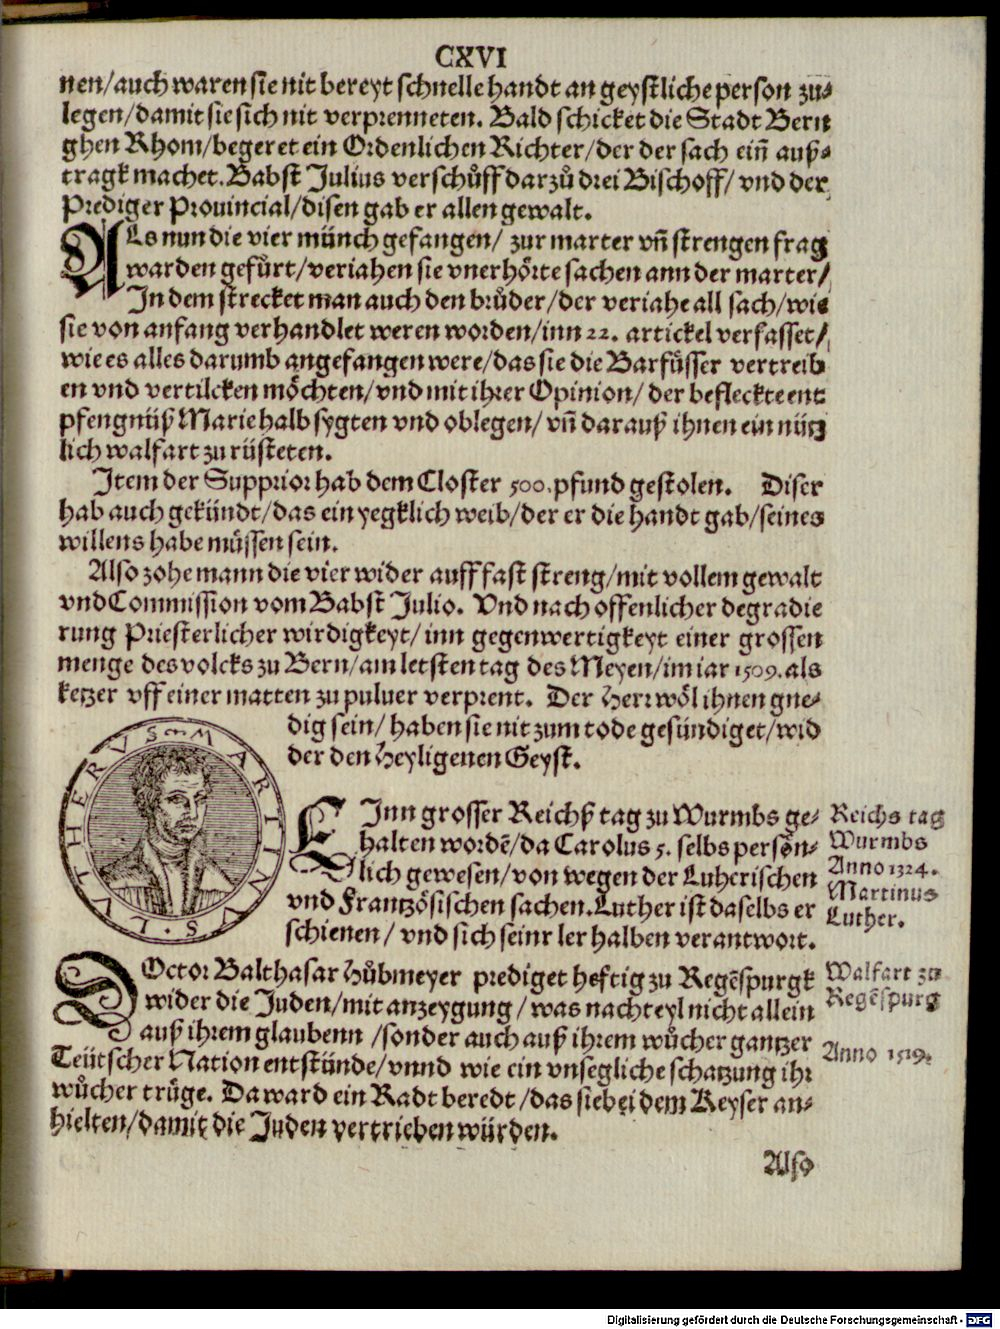 CXVI
nen/auch waren sie nit bereyt schnelle handt an geystliche person zu⸗
legen/damit sie sich nit verprenneten. Bald schicket die Stadt Bern
ghen Rhom/begeret ein Ordenlichen Richter/der der sach ein̄ auß⸗
tragk machet. Babst Julius verschůff darzů drei Bischoff/ vnd der
Prediger Prouincial/disen gab er allen gewalt.
ALs nun die vier münch gefangen/ zur marter vn̄ strengen frag
warden gefůrt/veriahen sie vnerhörte sachen ann der marter/
In dem strecket man auch den brůder/der veriahe all sach/wie
sie von anfang verhandlet weren worden/inn 22. artickel verfasset/
wie es alles darumb angefangen were/das sie die Barfůsser vertreib
en vnd vertilcken möchten/vnd mit ihrer Opinion/ der befleckte ent
pfengnüß Marie halb sygten vnd oblegen/ vn̄ darauß ihnen ein nütz
lich walfart zu rüsteten.
Item der Supprior hab dem Closter 500. pfund gestolen. Diser
hab auch gekündt/das ein yegklich weib/der er die handt gab/seines
willens habe müssen sein.
Also zohe mann die vier wider auff fast streng/mit vollem gewalt
vnd Commission vom Babst Julio. Vnd nach offenlicher degradie
rung Priesterlicher wirdigkeyt/inn gegenwertigkeyt einer grossen
menge des volcks zu Bern/am letsten tag des Meyen/im iar 1509. als
ketzer vff einer matten zu puluer verprent. Der Herr wöl ihnen gne⸗
dig sein/ haben sie nit zum tode gesündiget/wid
der den Heyligenen Geyst.
MARTINVS LVTHERVS
EInn grosser Reichß tag zu Wurmbs ge⸗
halten wordē/da Carolus 5. selbs persön⸗
lich gewesen/von wegen der Luherischen
vnd Frantzösischen sachen. Luther ist daselbs er
schienen/ vnd sich seinr ler halben verantwort.
Reichs tag
Wurmbs
Anno 1524.
Martinus
Luther.
DOctor Balthasar Hůbmeyer prediget heftig zu Regēspurgk
wider die Juden/mit anzeygung/ was nachteyl nicht allein
auß ihrem glaubenn /sonder auch auß ihrem wůcher gantzer
Teütscher Nation entstünde/vnnd wie ein vnsegliche schatzung ihr
wůcher trüge. Da ward ein Radt beredt /das sie bei dem Keyser an⸗
hielten/damit die Juden vertrieben würden.
Walfart zu
Regēspurg
Anno 1519.
Also
Digitalisierung gefördert durch die Deutsche Forschungsgemeinschaft - DFG